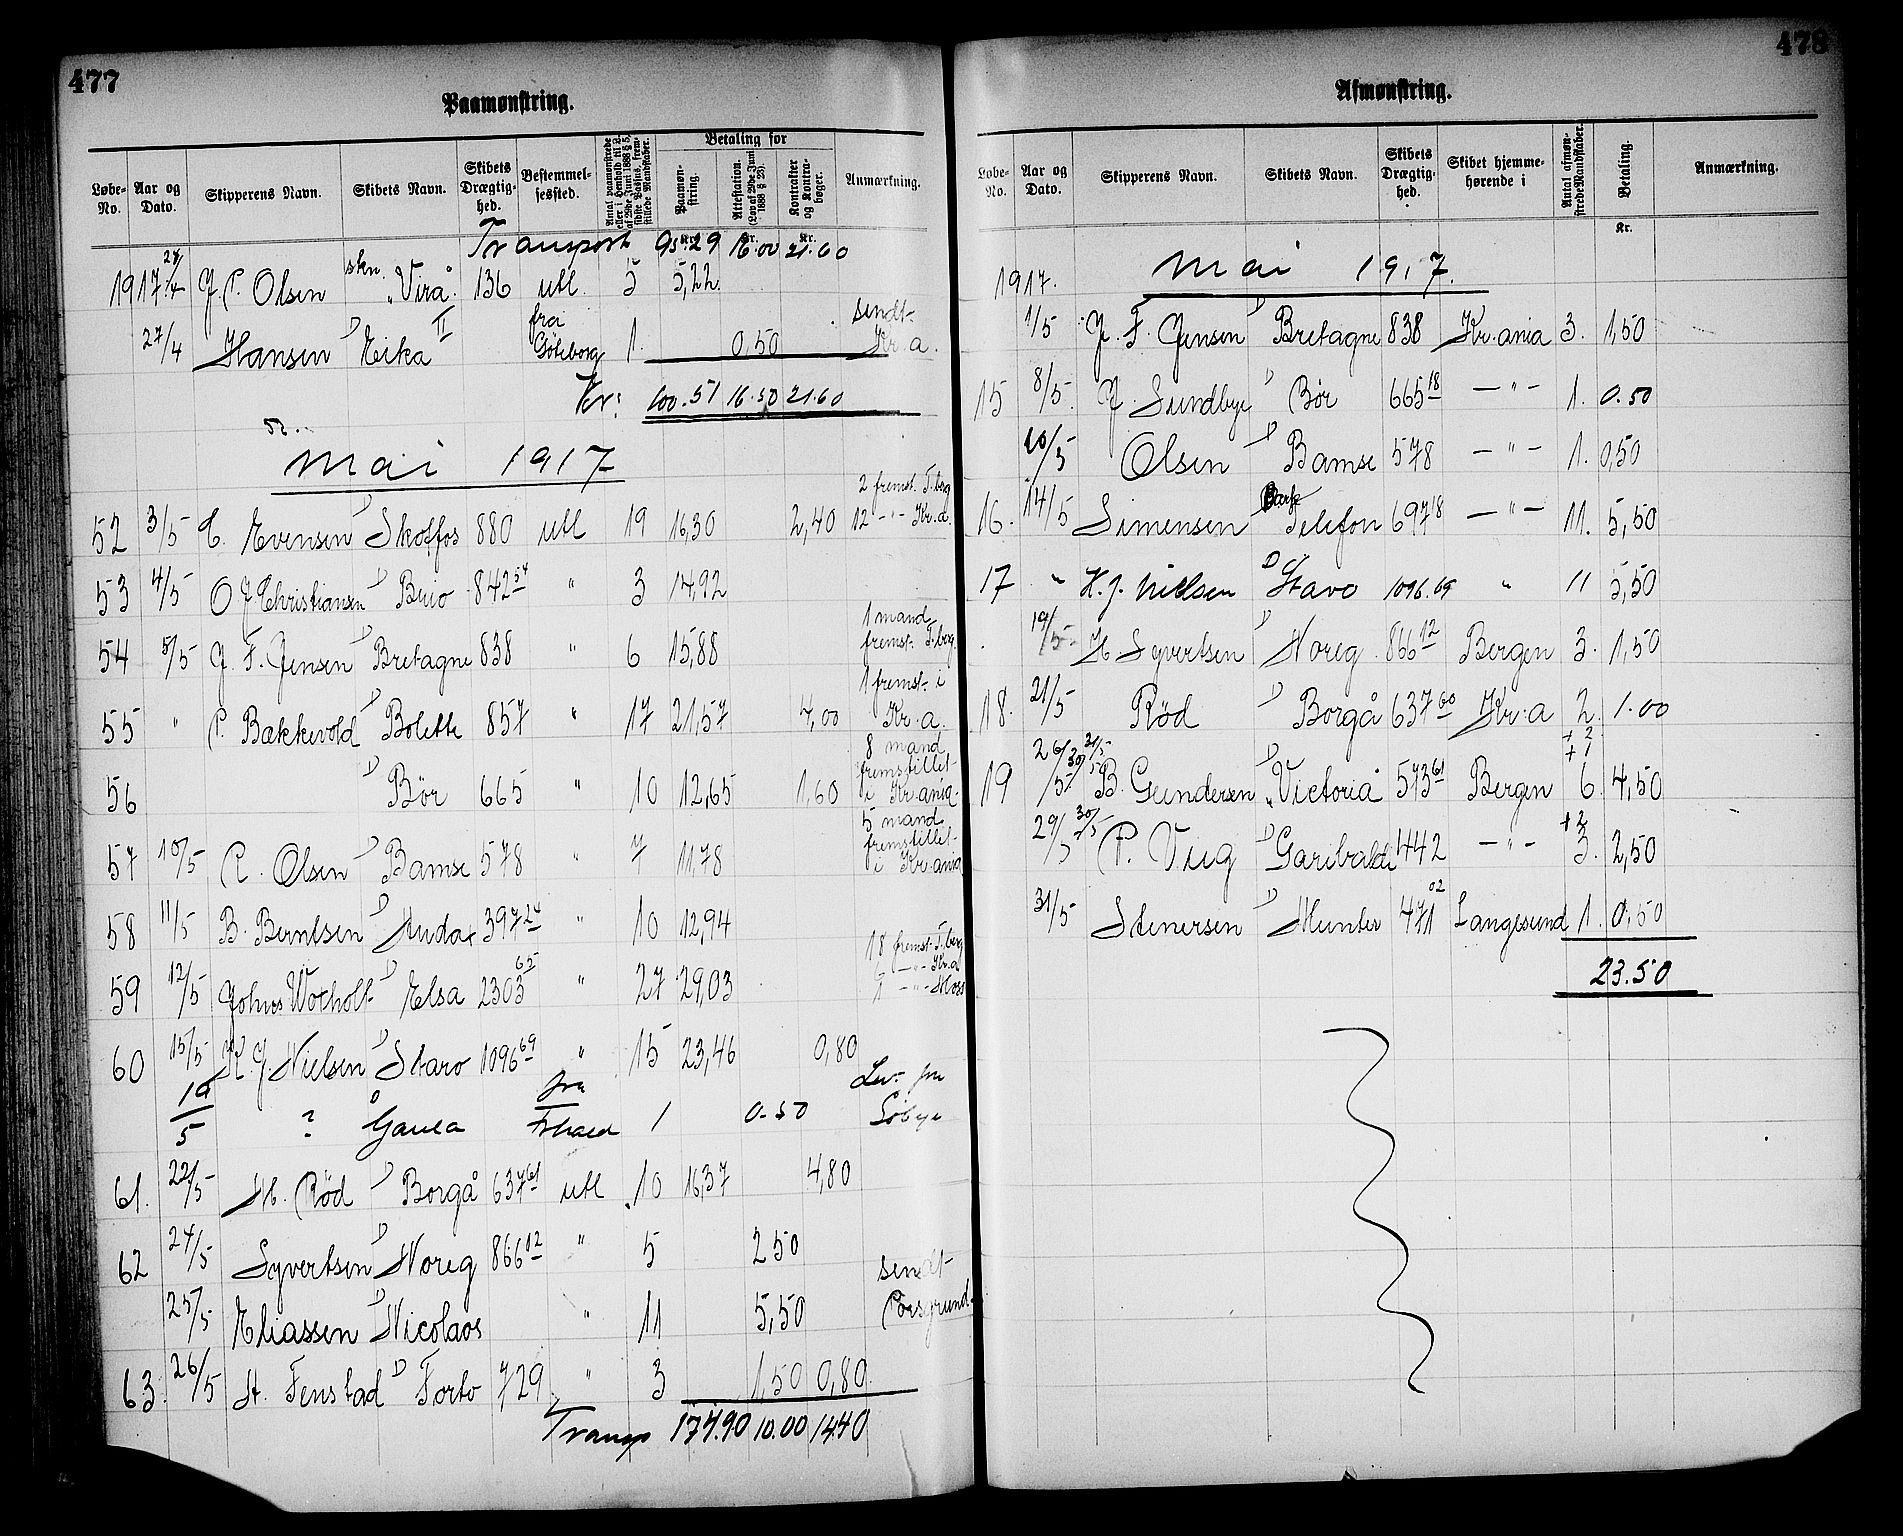 477
Paamønstring.
Løbe-No. Aar og Dato. Skipperens Navn. Skibets Navn. Skibets Drægtighed. Bestemmelsessted. Betaling for Paamønstring. Attestation. (Lov af 29de Juni 1888 § 23). Kontrakter og Kontrabøger. Anmærkning.
Transport 95.29 16.00 21.60
1917 27/4 J. P. Olsen skn. "Virå" 136 utl. 5 5,22
27/4 Hansen D Eika II fra Göteborg 1. 0,50 sendt Kr.a.
Kr: 100.51 16.50 21.60
Mai 1917
52 3/5 C. Evensen D Skotfos 880 utl 19 16,30 2,40 2 fremst. T.berg 12 -"- Kr.a.
53 4/5 O J Christiansen D Brio 842 54 " 3 14,92
54 5/5 J. F. Jensen D Bretagne 838 " 6 15,88 1 mand fremst. T.berg.
55 " P. Bækkevold D Bolette 857 " 17 21,57 4,00 1 fremst. i Kr.a.
56 D Bør 665 " 10 12,65 1,60 8 mand fremstillet i Kr.ania.
57 10/5 R. Olsen D Bamse 578 " 7 11,78 5 mand fremstillet i Kr.ania
58 11/5 B. Berntsen D Audax 397 24 " 10 12,94
59 12/5 Johns Wotholt D Elsa 2303 65 " 27 29,03 18 fremst. T.berg -"- Kr.a 1 -"- Moss
60 15/5 K. J. Nielsen D Stavo 1096 69 " 15 23,46 0,80
19/5 ? D Gaula fra F.hald 1 0.50
61. 22/5 H. Rød D Borgå 637 61 utl 10 16,37 4,80
62 24/5 Syvertsen D Noreg 866 12 " 5 2 50
25/5 Eliassen D Nicolaos " 11 5,50 sendt Porsgrund.
63. 26/5 St. Fenstad D Forto 729 " 3 1,50 0,80
Transp 174.90 10.00 14.40
478
Afmønstring.
Løbe-No. Aar og Dato. Skipperens Navn. Skibets Navn. Skibets Drægtighed. Skibet hjemmehørende i Antal afmønstrede Mandskaber. Betaling. Anmærkning.
Kr.
1917. Mai 1917.
1/5 J. F. Jensen D Bretagne 838 Kr.ania 3. 1,50
15 8/5 J. Sundbye D Bør 665 18 -"- 1. 0.50
10/5 Olsen D Bamse 578 -"- 1. 0,50
16. 14/5 Simensen Bark Telefon 697 18 -"- 11. 5,50
17 " K. J. Nielsen D Stavo 1096.69 " 11 5,50
19/5 H Syvertsen D Noreg 866 12 Bergen 3. 1,50
18. 21/5 Rød D Borgå 637 60 Kr.a 2. 1.00
19 26/5 30/5 31/5 B. Gundersen D "Victoria" 573 61 Bergen 6. + 1 + 2 4,50
29/5 30/5 P. Viig D Garibaldi 442 -"- 3. + 2 2,50
31/5 Stenersen D Hunter 471 02 Langesund 1. 0,50
23.50